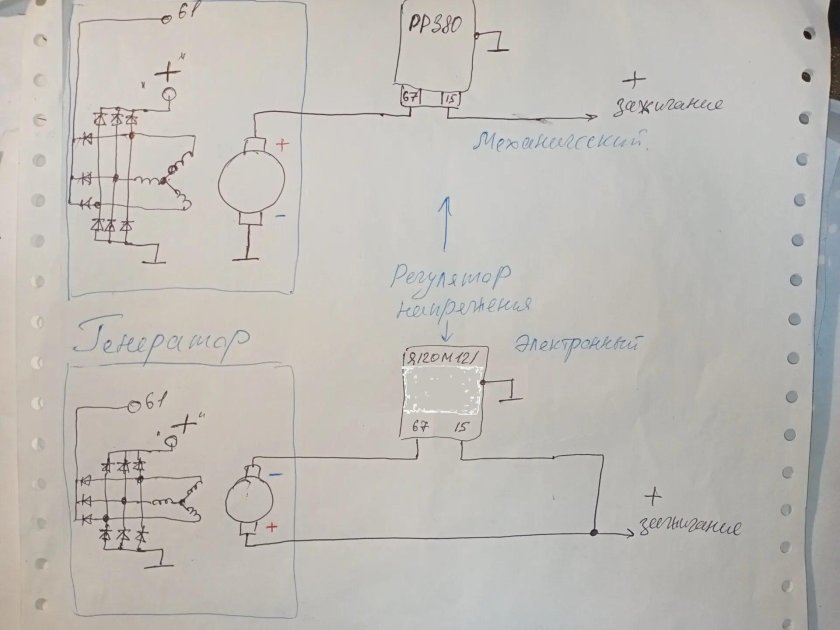 61
РР380
"+"
67 15
+
зажигание
Механический.
+
-
Регулятор
напряжения
Генератор
Электронный
Я120М12/
61
"+"
67 15
-
+
+
зажигание